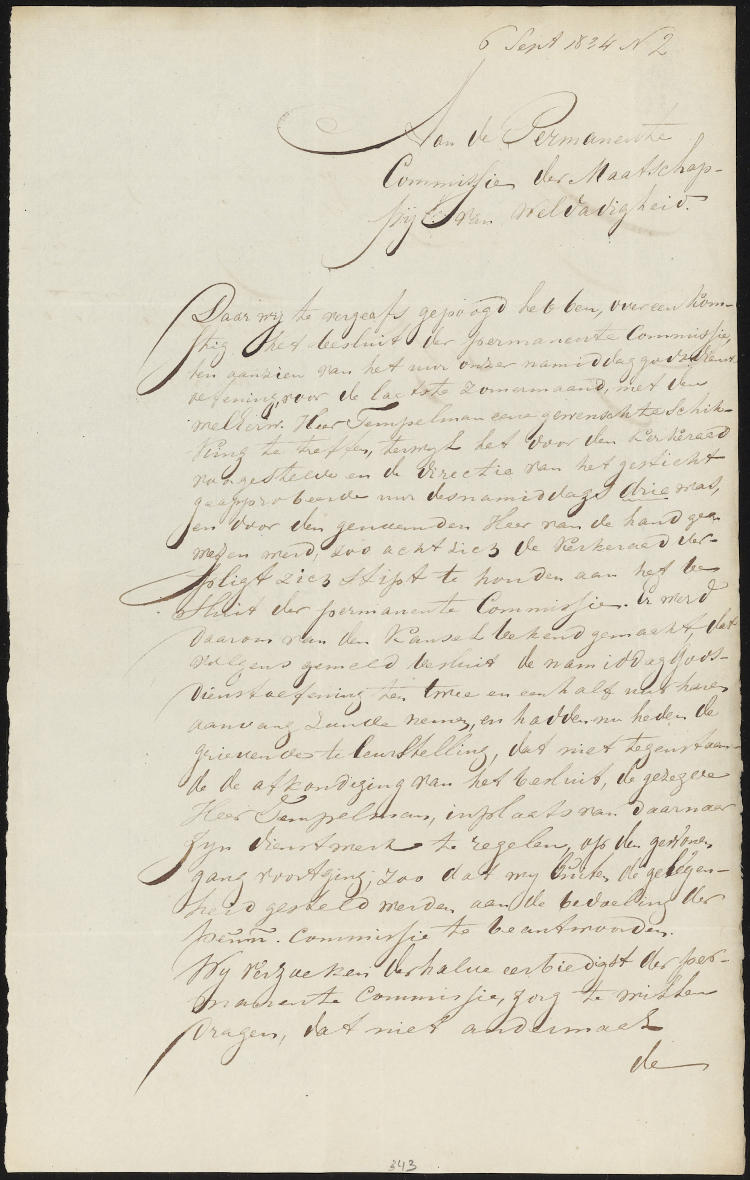 6 Sept 1834 N 2
Aan de Permanente
Commissie der Maatschap-
pij van Weldadigheid.
Daar wij te vergeefs gepoogd hebben, overeenkom-
stig het besluit der permanente Commissie,
ten aanzien van het uur onzer namiddag godsdienst
oefening, voor de laatste Zomermaand, met den
weleerw. Heer Tempelman eene gewenschte Schik-
king te treffen, terwyl het door den Kerkeraad
voorgestelde en de directie van het gesticht
geapprobeerde uur desnamiddags drie was,
en door den genoemden Heer van de hand gee
wezen werd, zoo acht zich de Kerkeraad ver-
pligt zich stipt te houden aan het be
sluit der permanente Commissie. Er werd
daarom van den Kansel bekend gemaakt, dat
volgens gemeld besluit de namiddag Gods-
dienstoefening ten twee en een half uur haren
aanvang zoude nemen, en hadden nu heden de
grievende te leurstelling, dat niet tegenstaan-
de de afkondiging van het besluit, de gezegde
Heer Tempelman, inplaats van daarnaar
zyn dienstwerk te regelen, op den gewonen
gang voortging, zoo dat wy buiten de gelegen-
heid gesteld werden aan de bedoeling der
perm. Commissie te beantwoorden.
Wy verzoeken derhalve eerbiedigst der per-
manente Commissie, zorg te willen
dragen, dat niet andermaal
de
343